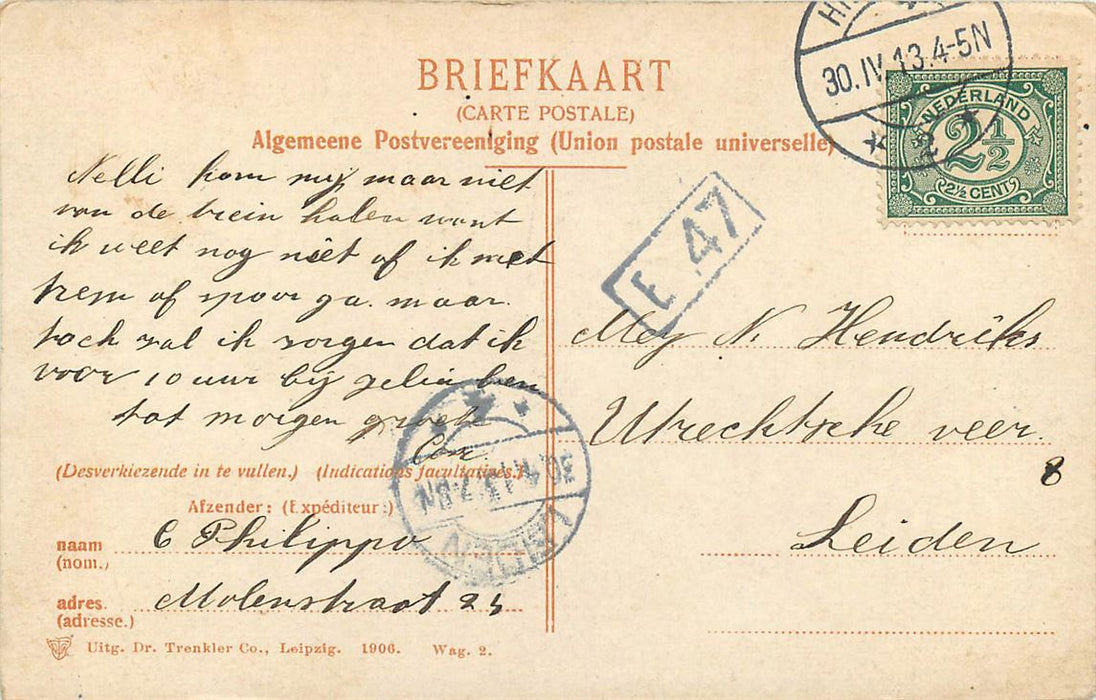 BRIEFKAART
(CARTE POSTALE)
Algemeene Postvereeniging (Union postale universelle)
30.IV.13.4-5N
NEDERLAND
2½
2½ CENT
E 47
Nelli kom mij maar niet
van de trein halen want
ik weet nog niet of ik met
trem of spoor ga. maar
toch zal ik zorgen dat ik
voor 10 uur bij jelui ben
tot morgen groete
Cor
(Desverkiezende in te vullen.) (Indications facultatives.)
Afzender: (Expéditeur:)
naam C Philippo
(nom.)
adres. Molenstraat
(adresse.)
LEIDEN
Mej N. Hendriks
Utrechtsche veer.
8
Leiden
Uitg. Dr. Trenkler Co., Leipzig. 1906. Wag. 2.